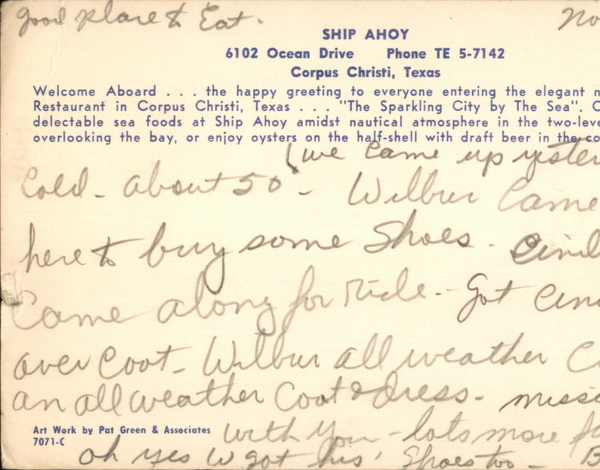 Good place to Eat.
No
SHIP AHOY
6102 Ocean Drive Phone TE 5-7142
Corpus Christi, Texas
Welcome Aboard . . . the happy greeting to everyone entering the elegant n
Restaurant in Corpus Christi, Texas . . . "The Sparkling City by The Sea". O
delectable sea foods at Ship Ahoy amidst nautical atmosphere in the two-leve
overlooking the bay, or enjoy oysters on the half-shell with draft beer in the co
(we came up yester
Cold - about 50° - Wilbur Came
here to buy some Shoes -
Came along for ride - Got
over Coat - Wilbur all weather C
an all weather Coat & dress - miss
Art Work by Pat Green & Associates
7071-C
with you - lots more f
oh yes W got his Shoes too - B